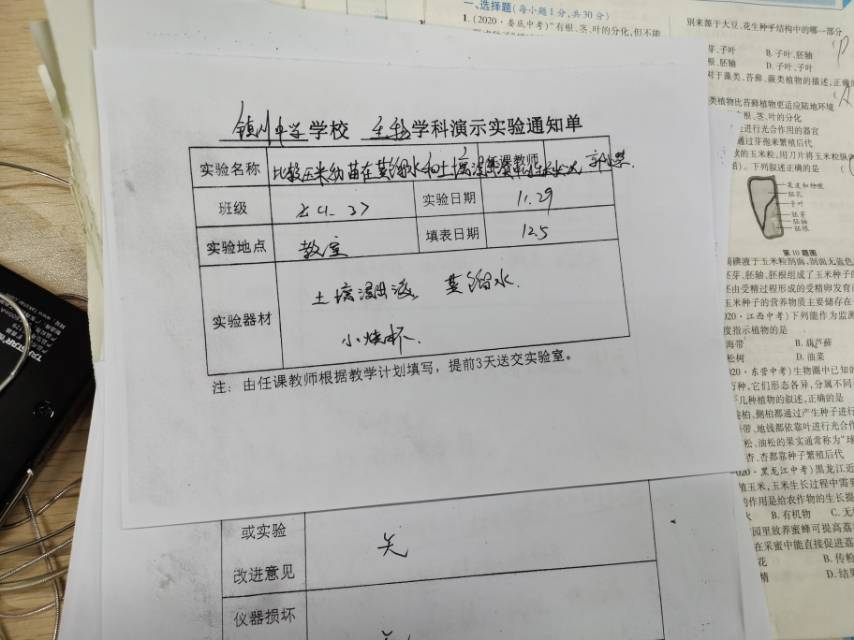 一、选择题(每小题1分,共30分)
1.(2020·娄底中考)"有根、茎、叶的分化,但不能
别来源于大豆、花生种子结构中的哪一部分
芽、子叶 B.子叶、胚轴
根、胚轴 D.子叶、子叶
对于藻类、苔藓、蕨类植物的描述,正确的
类植物比苔藓植物更适应陆地环境
根、茎、叶的分化
进行光合作用的器官
通过芽孢来繁殖后代
的玉米粒,用刀片将玉米粒纵
。下列叙述正确的是
果皮和种皮
胚乳
子叶
胚芽
胚轴
胚根
第10题图
碘液于玉米粒剖面,剖面无蓝色
胚芽、胚轴、胚根组成了玉米种子的
由受精过程形成的受精卵发育
玉米种子的营养物质主要储存在
020·江西中考)下列能作为监测
度指示植物的是
海带 B.葫芦藓
松树 D.油菜
020·东营中考)生物圈中已知的
万种,它们形态各异,分属不同
几种植物的叙述,正确的是
侧柏都通过产生种子进行
带、地钱都依靠叶进行光合作
松、油松的果实通常称为"球
杏、杏都靠种子繁殖后代
020·黑龙江中考)黑龙江近
植玉米,玉米生长过程中需要
的作用是给农作物的生长提
B.有机物 C.无
园里放养蜜蜂可提高荔
在采蜜中能直接促进荔
花 B.传粉
精 D.结果
镇川中学学校 生物学科演示实验通知单
实验名称 比较玉米幼苗在蒸馏水和土壤浸出液中的生长状况 任课教师
班级 实验日期 11.29
实验地点 教室 填表日期 12.5
实验器材 土壤浸出液 蒸馏水.
小烧杯.
注:由任课教师根据教学计划填写,提前3天送交实验室。
或实验
改进意见 无
仪器损坏